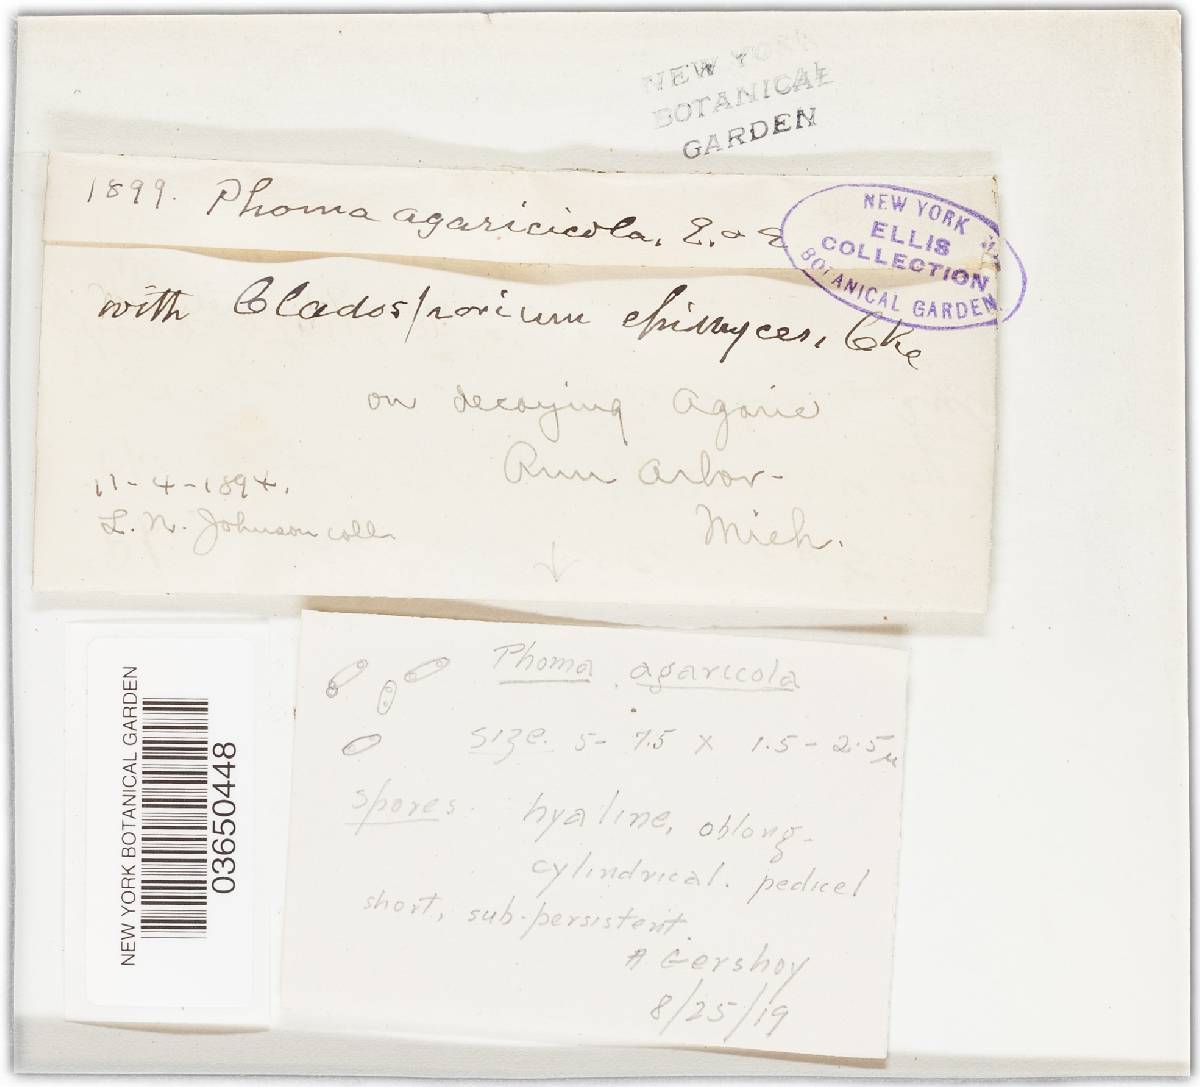 NEW YORK
BOTANICAL
GARDEN
1899. Phoma agaricicola, E. & E
NEW YORK
ELLIS
COLLECTION
BOTANICAL GARDEN
with Cladosporium epimyces, Cke
on decaying Agaric
Ann Arbor-
Mich.
11-4-1894.
L. N. Johnson coll.
NEW YORK BOTANICAL GARDEN
03650448
Phoma agaricola
size. 5- 7.5 x 1.5-2.5µ
spores. hyaline, oblong-
cylindrical. pedicel
short, sub-persistent.
A Gershoy
8/25/19